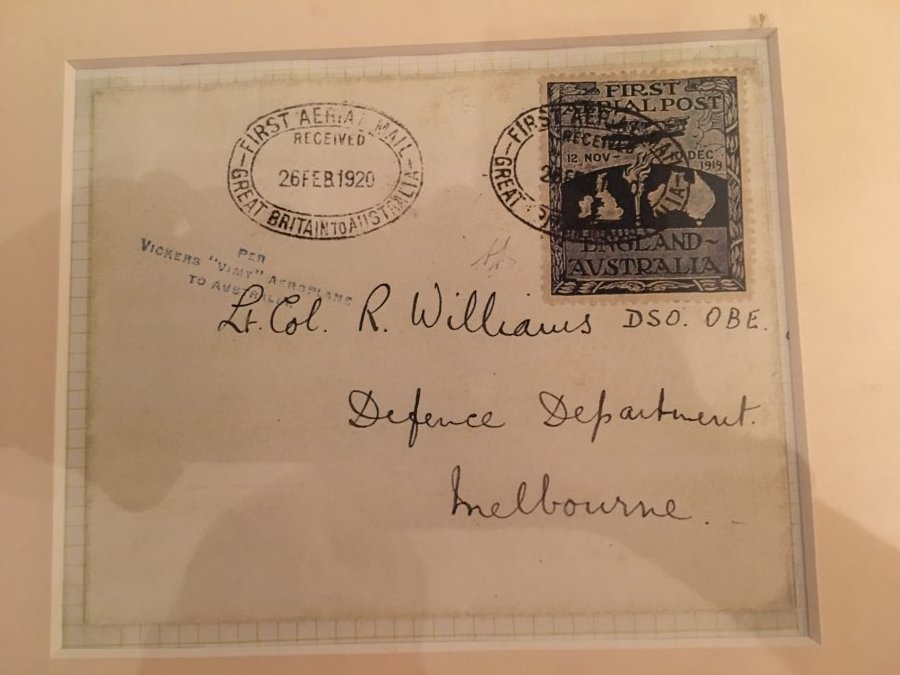 FIRST AERIAL MAIL
RECEIVED
26 FEB 1920
GREAT BRITAIN TO AUSTRALIA
FIRST AERIAL MAIL
RECEIVED
26 FEB
GREAT
FIRST
AERIAL POST
12. NOV - 10 DEC
1919
ENGLAND~
AVSTRALIA
PER
VICKERS "VIMY" AEROPLANE
TO AUSTRALIA
Lt. Col. R. Williams DSO. OBE.
Defence Department.
Melbourne.